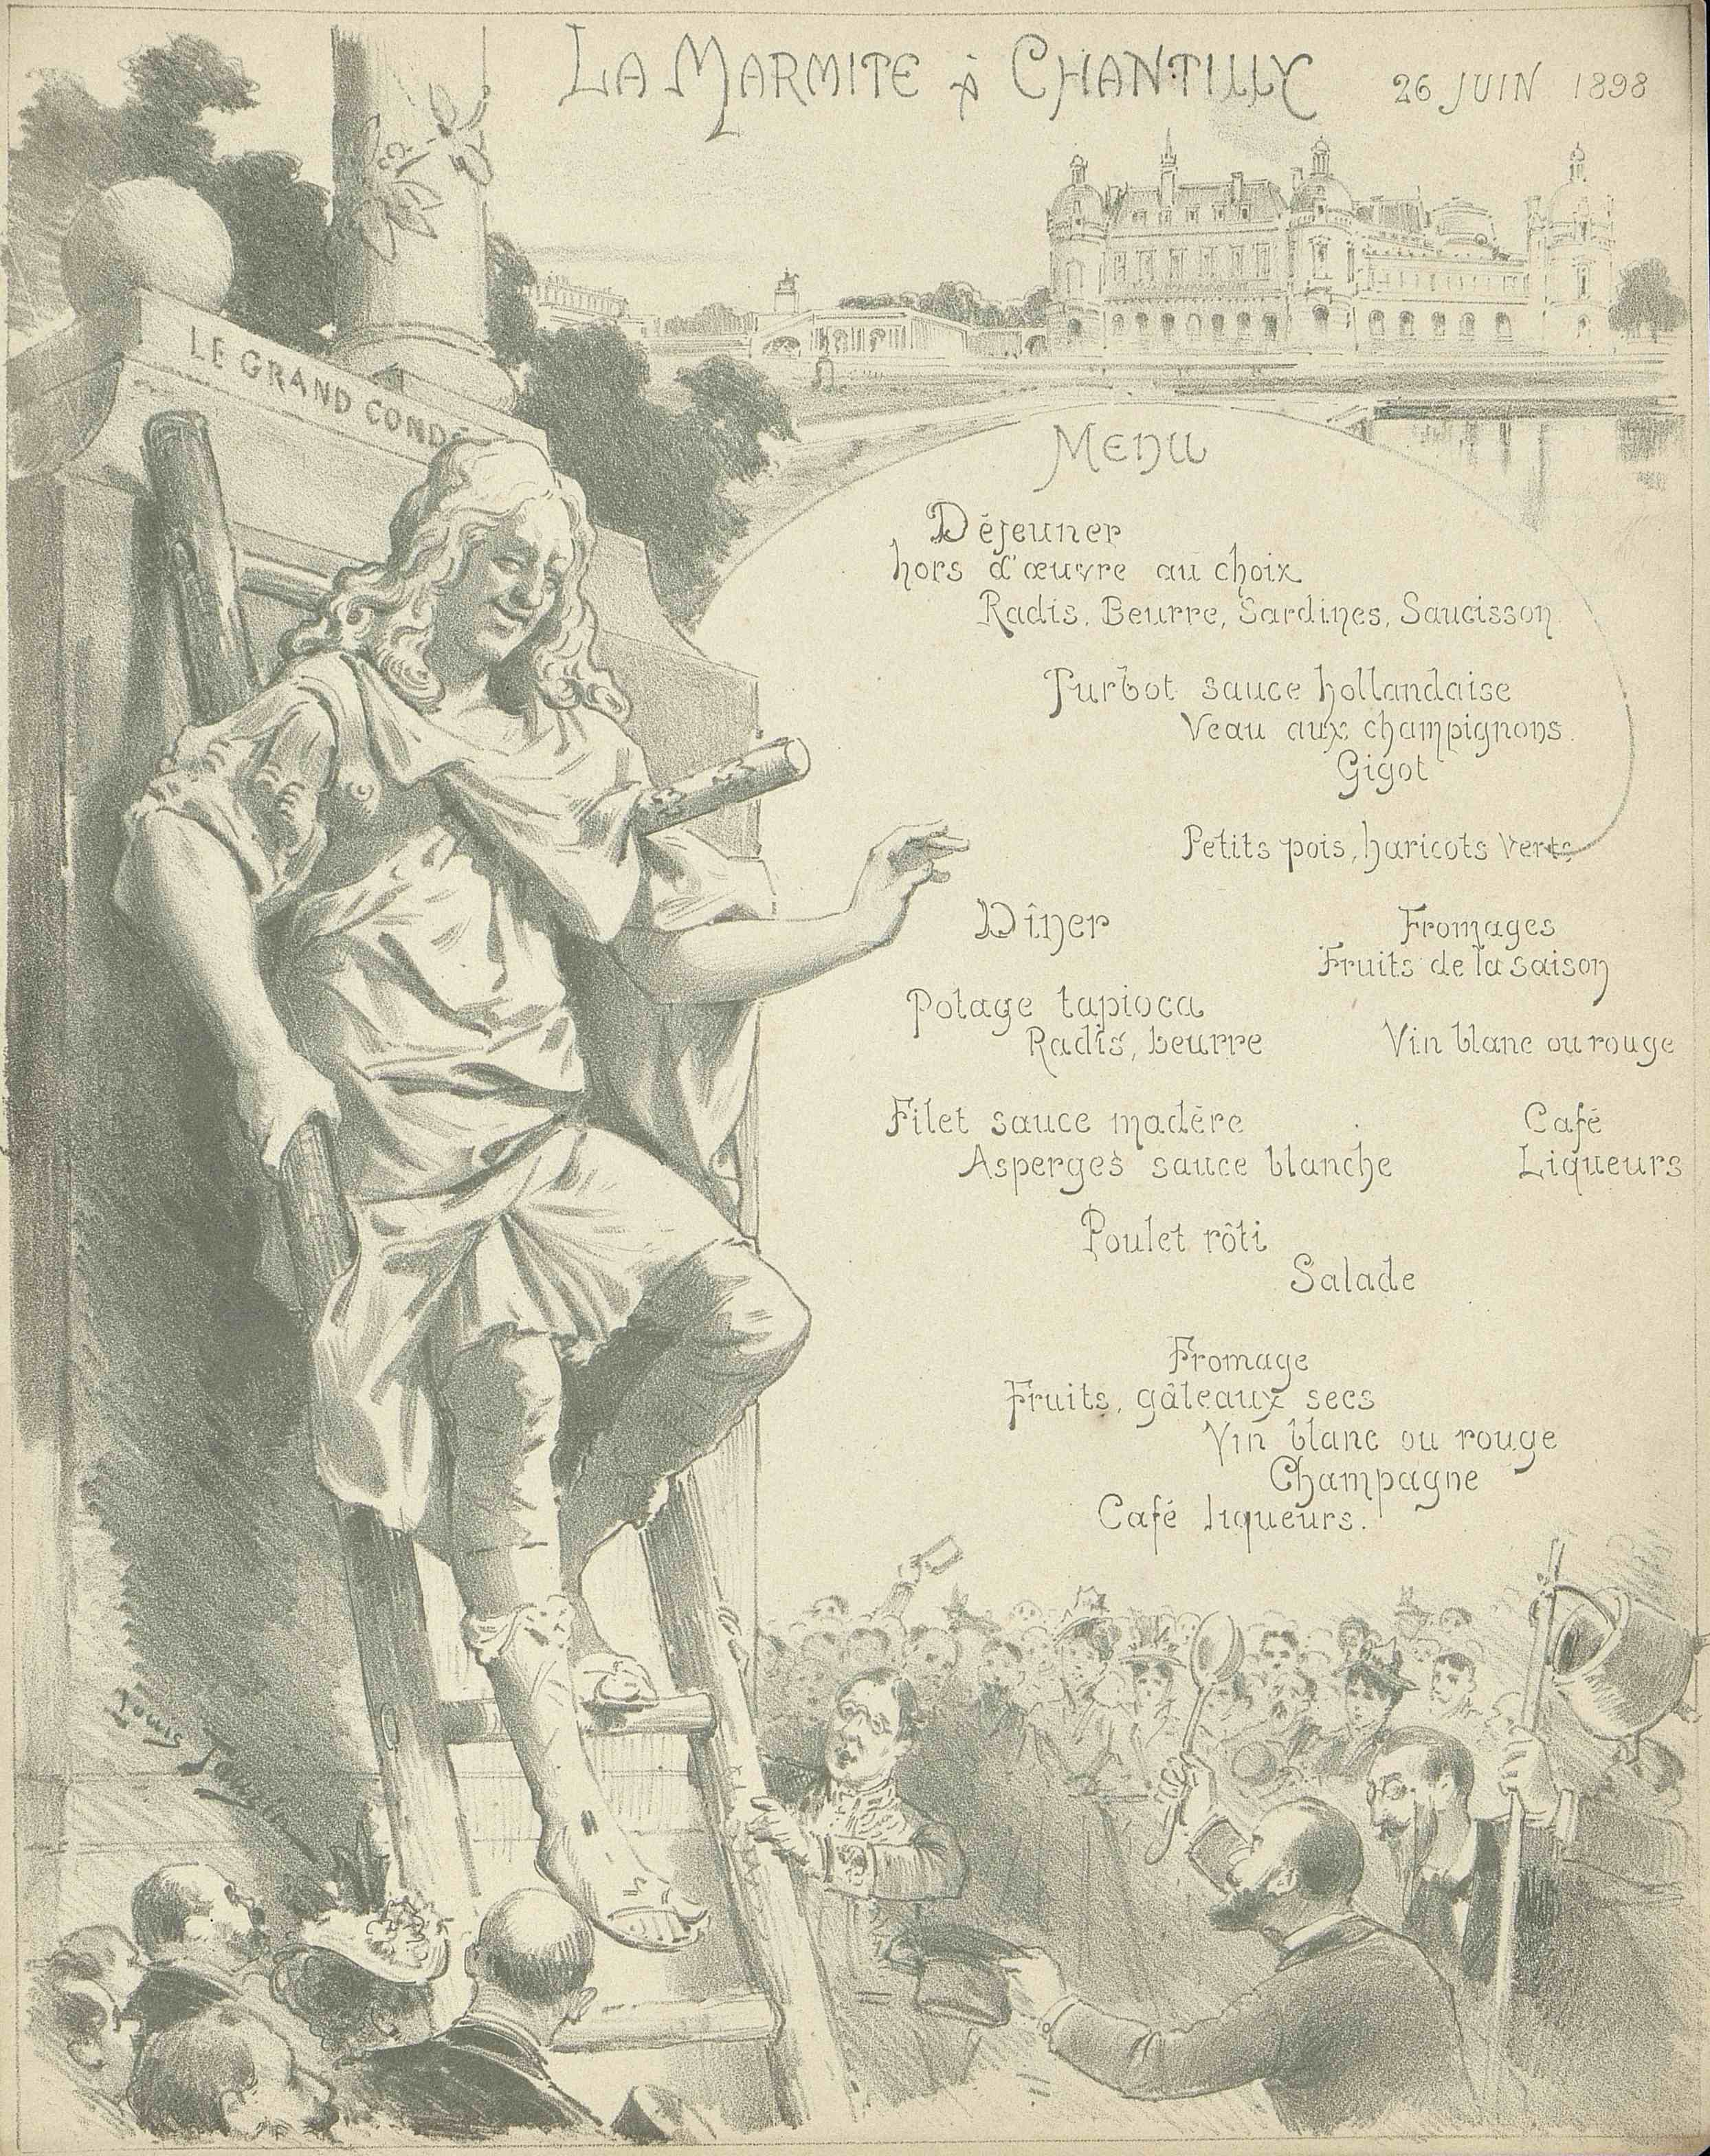 LA MARMITE à CHANTILLY 26 JUIN 1898
LE GRAND CONDÉ
Menu
Déjeuner
hors d'œuvre au choix
Radis, Beurre, Sardines, Saucisson
Turbot sauce hollandaise
Veau aux champignons.
Gigot
Petits pois, haricots verts
Fromages
Fruits de la saison
Vin blanc ou rouge
Café
Liqueurs
Dîner
Potage tapioca
Radis, beurre
Filet sauce madère
Asperges sauce blanche
Poulet rôti
Salade
Fromage
Fruits, gâteaux secs
Vin blanc ou rouge
Champagne
Café liqueurs.
Louis